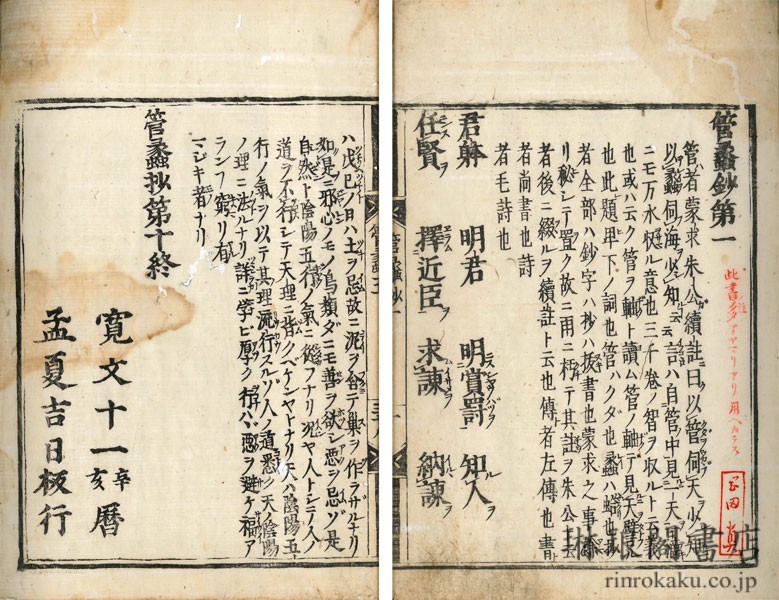 管蠡鈔第一
此書多アヤマリアリ用ヘカラス
岡田真
管者蒙求朱公續註曰以管伺天ヲ必ス知
以蠡伺海ヲ必知ト云云言ハ自管中見一天
ニモ万水 意也三千卷ノ智ヲ収ルト云義
也或ハ云ク管ヲ軸ト讀ム管ノ軸ニテ見天
也此題卑下ノ詞也管ハクダ也蠡ハ蛤也抄
者全部ハ鈔字ハ抄ハ拔書也蒙求之事
リ秘シテ置ク故ニ雨ニ朽テ其註ヲ朱公云
者後ニ綴ルヲ續註ト云也傳者左傳也書
者尚書也詩
者毛詩也
君躰 明君 明賞罰ヲ 知人ヲ
任賢ヲ 擇近臣ヲ 求諫ヲ 納諫ヲ
管蠡抄一
ハ戊巳ノ日ハ土ヲ忌故ニ泥ヲ含テ巣ヲ作ラザルナリ
如是ニ邪心ノモノ鳥類ダニモ善ヲ欲シ悪ヲ忌ゾ是
自然ト陰陽五行ノ氣ニ從フナリ況ヤ人トシテ人ノ
道ヲ不行シテ天理ニ背クベケンヤトナリ夫ハ陰陽五
行ノ氣ヲ以テ其理流行スルゾ人ノ道悉ク天ノ陰陽
ノ理ニ法ルナリ詳ニ学ビ厚ク行ハヾ悪ヲ避ケ福ア
ランフ窮リ有
マジキ者ナリ
管蠡抄第十終
寛文十一辛亥暦
孟夏吉日板行
琳琅閣書店
rinrokaku.co.jp